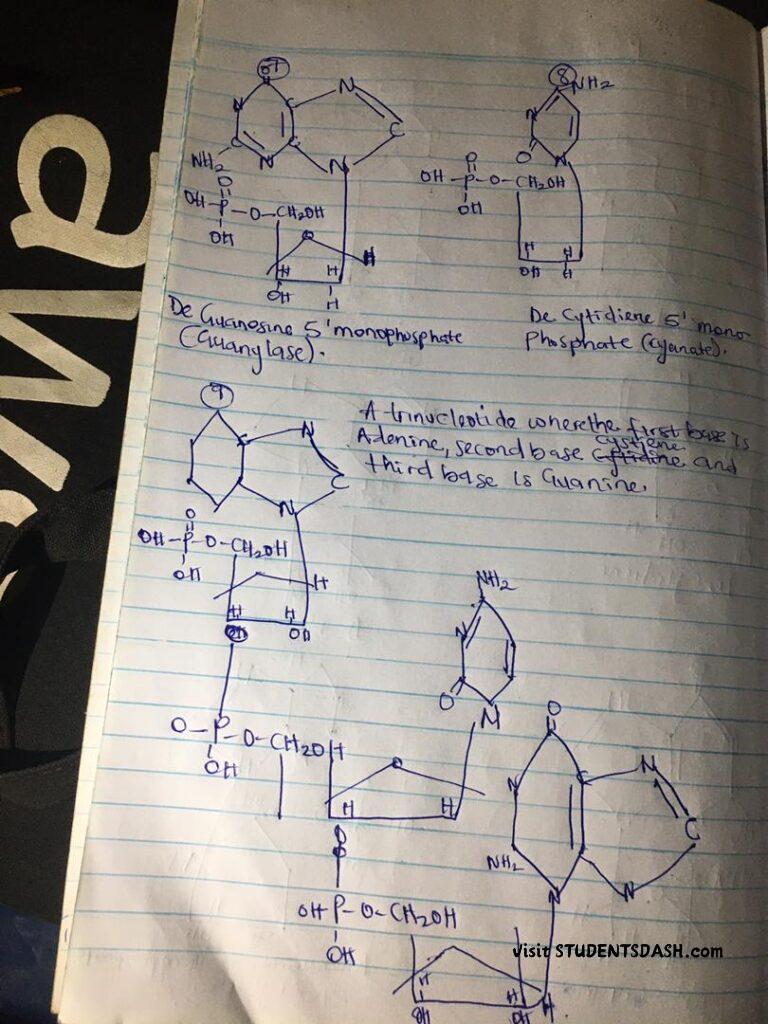 07
N
N
C
C
C
NH2
N
N
O
OH-P-O-CH2OH
OH
O
H
H
H
OH
H
De Guanosine 5' monophosphate
(Guanylase).
8
NH2
N
O
N
O
OH-P-O-CH2OH
OH
H
H
OH
H
De Cytidiene 5' mono
Phosphate (Cyanate).
9
A trinucleotide where the first base is
Adenine, second base cystiene cytidine and
third base is Guanine.
N
C
C
N
O
OH-P-O-CH2OH
OH
H
H
H
OH
OH
NH2
N
O
N
O-P-O-CH2OH
OH
O
H
H
O
N
C
N
C
NH2
N
N
OH P-O-CH2OH
OH
H
H
H
OH
OH
Visit STUDENTSDASH.com